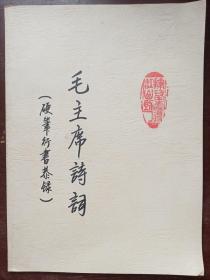 毛主席詩詞
（硬筆行書恭錄）